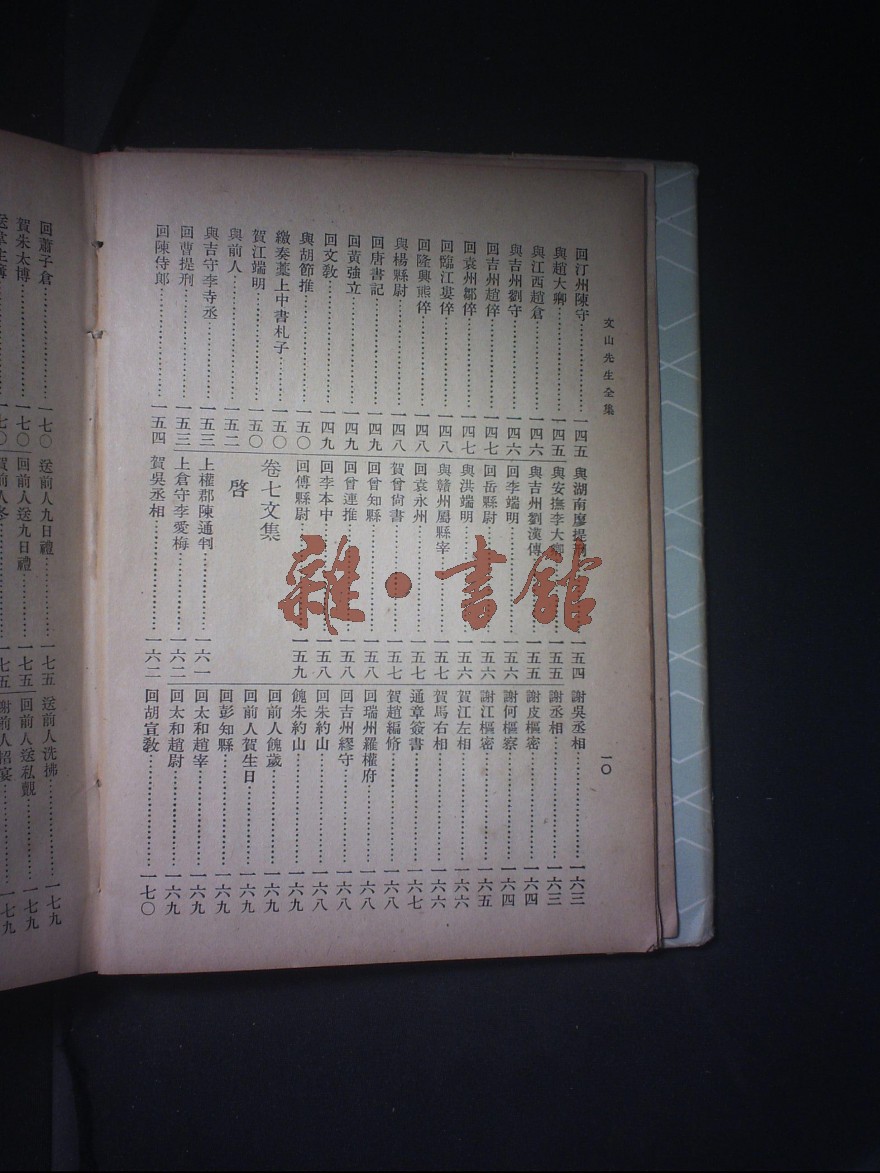 文山先生全集
一〇
回汀州陳守……一四五
與趙大卿……一四五
與江西趙倉……一四六
與吉州劉守……一四六
回吉州趙倅……一四七
回袁州鄒倅……一四七
回臨江婁倅……一四八
回隆興熊倅……一四八
與楊縣尉……一四八
回唐書記……一四九
回黃強立……一四九
回文敎……一四九
與胡節推……一五〇
繳奏藁上中書札子……一五〇
賀江端明……一五〇
與前人……一五二
與吉守李寺丞……一五三
回曹提刑……一五三
回陳侍郎……一五四
與湖南廖提……一五四
與安撫李大卿……一五五
與吉州劉漢傳……一五五
回李端明……一五六
回岳縣尉……一五六
與洪端明……一五六
與贛州屬縣宰……一五七
回袁永州……一五七
賀曾尙書……一五七
回曾知縣……一五八
回曾連推……一五八
回李本中……一五八
回傅縣尉……一五九
卷七文集
啓
上權郡陳通判……一六一
上倉守李愛梅……一六二
賀吳丞相……一六二
謝吳丞相……一六三
謝丞相……一六三
謝皮樞密……一六四
謝何樞察……一六四
謝江樞密……一六五
賀江左相……一六六
賀馬右相……一六六
通章簽書……一六七
賀趙編脩……一六八
回瑞州羅權府……一六八
回吉州繆守……一六八
回朱約山……一六八
餽朱約山……一六九
回前人餽歲……一六九
回前人賀生日……一六九
回彭知縣……一六九
回太和趙宰……一六九
回太和趙尉……一六九
回胡宣敎……一七〇
回蕭子倉……一七〇
賀朱太博……一七〇
一七〇
送前人九日禮……一七五
回前人送九日禮……一七五
賀前人冬……一七五
送前人洗拂……一七九
回前人送私覿……一七九
謝前人招宴……一七九
雜·書館